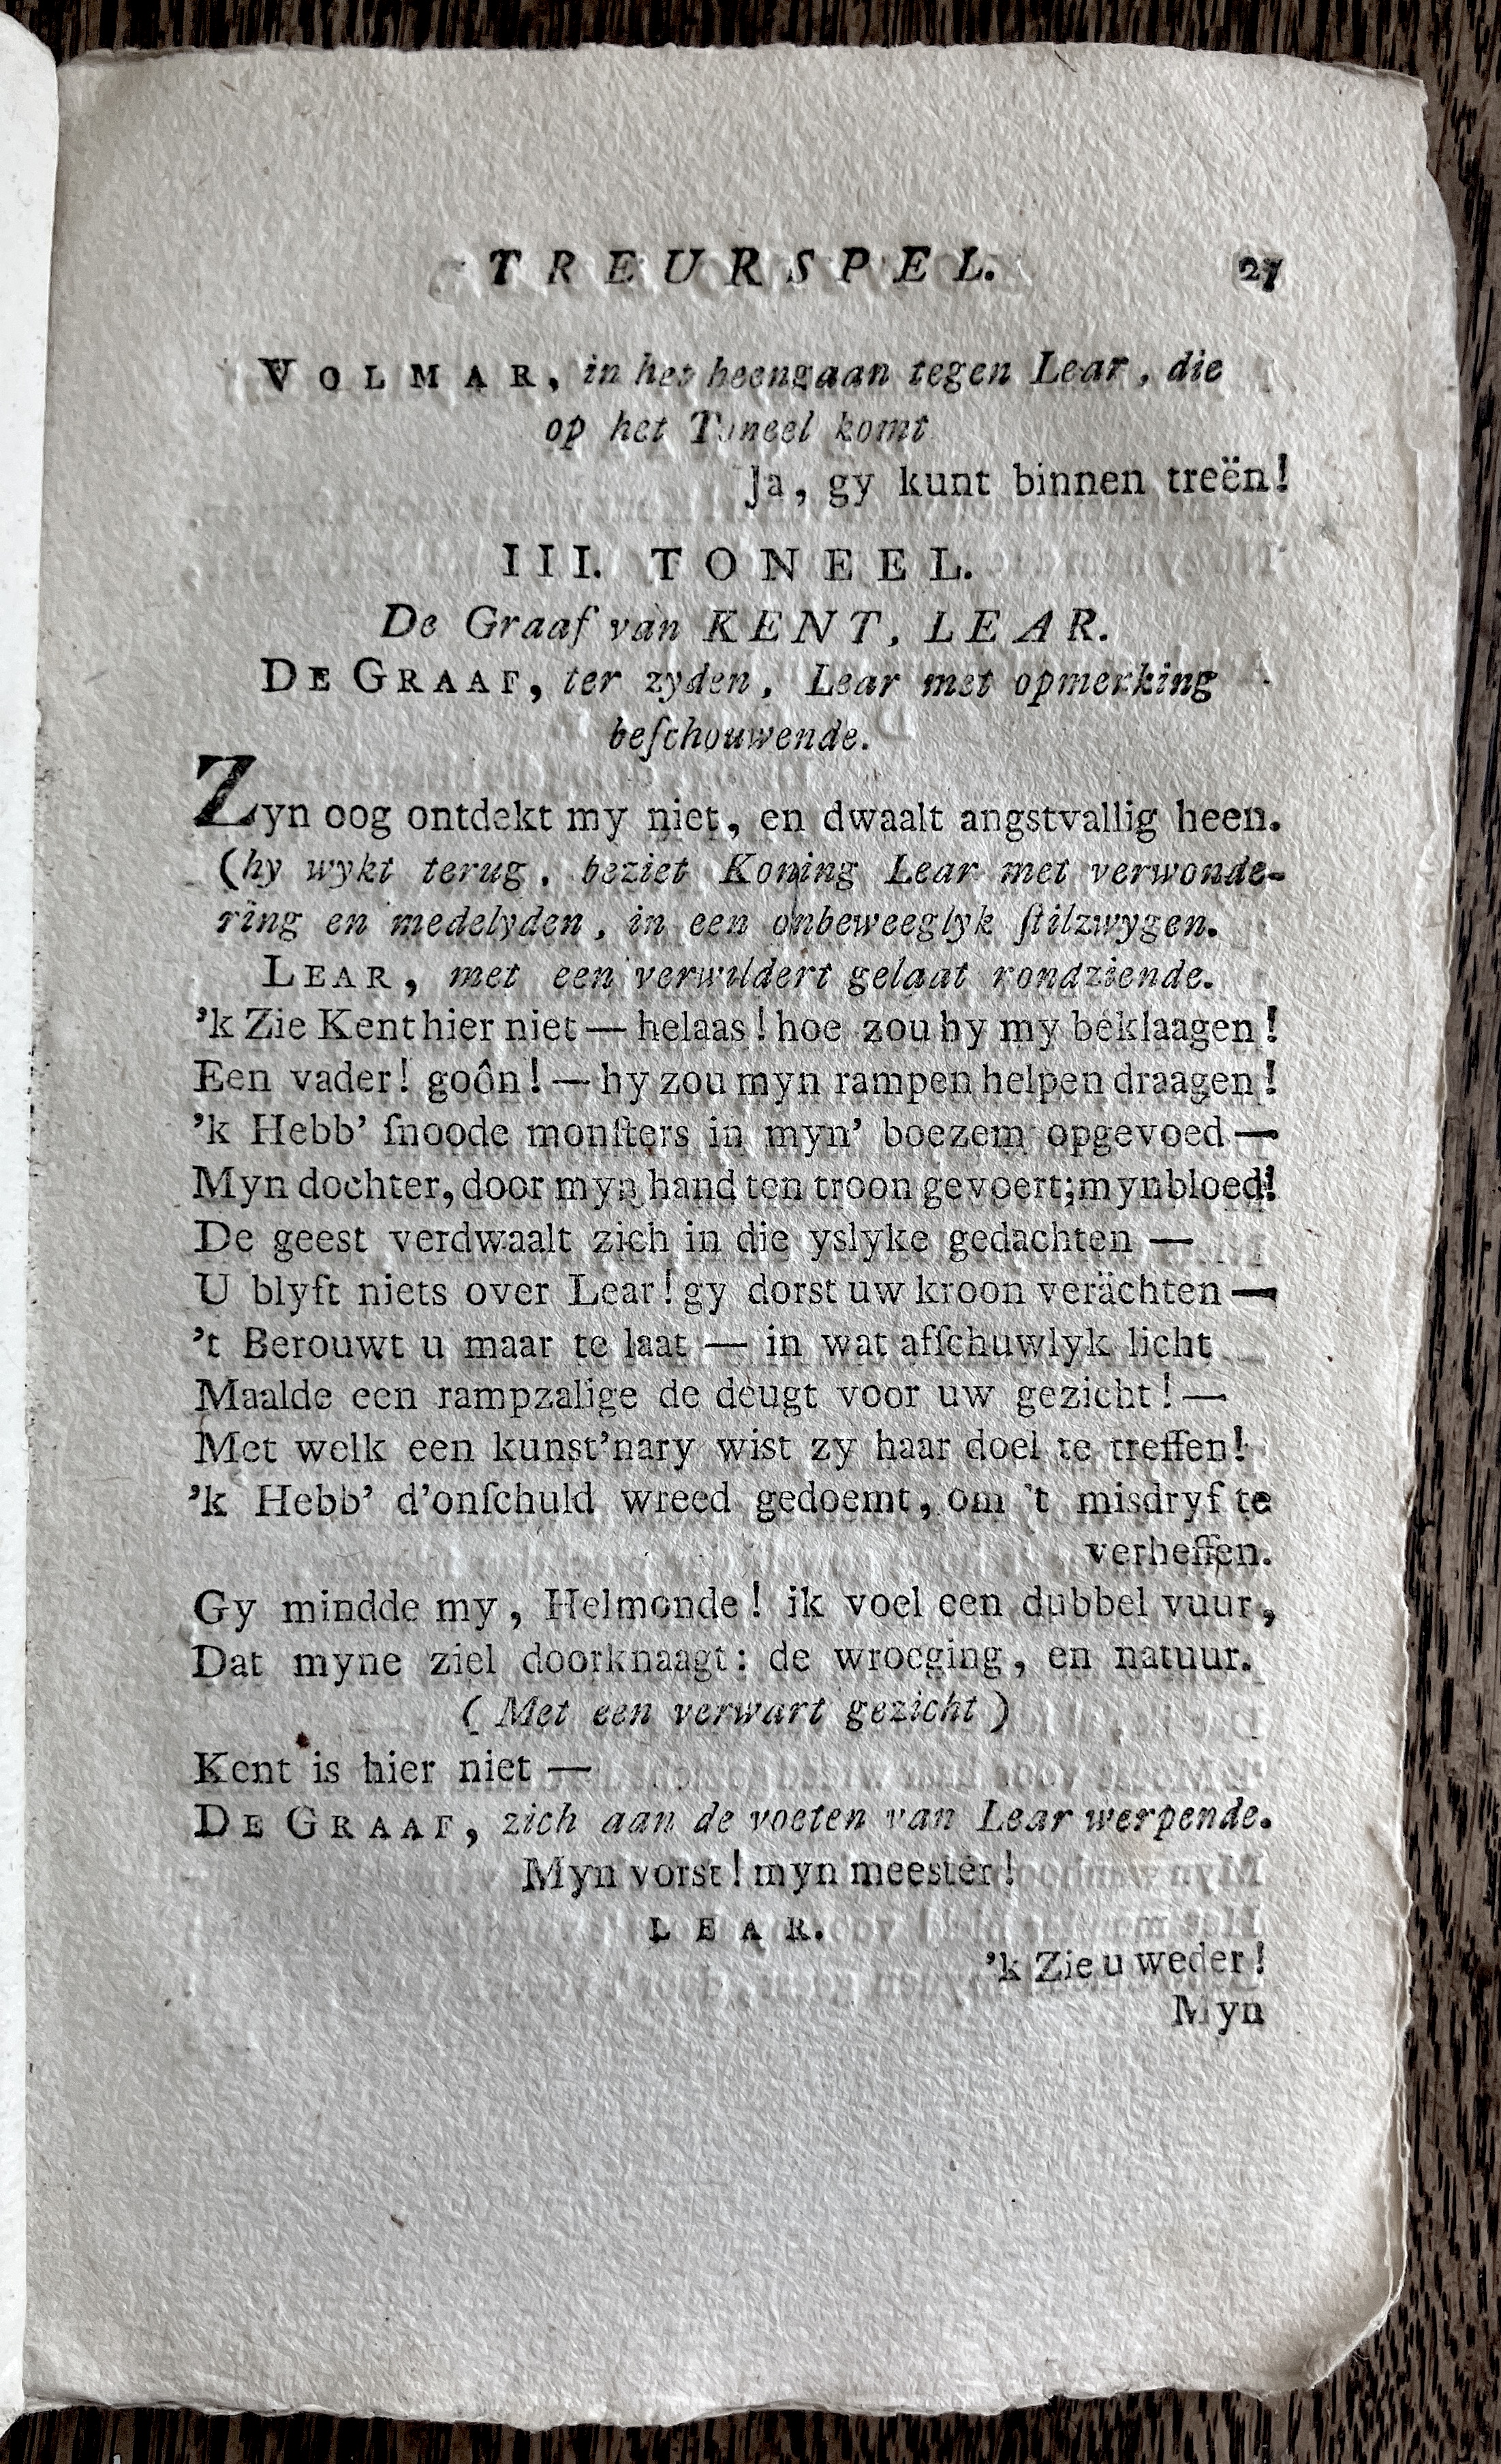 TREURSPEL. 27
VOLMAR, in het heengaan tegen Lear, die
op het Toneel komt
Ja, gy kunt binnen treën!
III. TONEEL.
De Graaf van KENT, LEAR.
DE GRAAF, ter zyden, Lear met opmerking
beſchouwende.
Zyn oog ontdekt my niet, en dwaalt angstvallig heen.
(hy wykt terug, beziet Koning Lear met verwonde-
ring en medelyden, in een onbeweeglyk ſtilzwygen.
LEAR, met een verwildert gelaat rondziende.
'k Zie Kent hier niet — helaas! hoe zou hy my beklaagen!
Een vader! goôn! — hy zou myn rampen helpen draagen!
'k Hebb' ſnoode monſters in myn' boezem opgevoed —
Myn dochter, door myn hand ten troon gevoert; myn bloed!
De geest verdwaalt zich in die yslyke gedachten —
U blyft niets over Lear! gy dorst uw kroon verächten —
't Berouwt u maar te laat — in wat afſchuwlyk licht
Maalde een rampzalige de deugt voor uw gezicht! —
Met welk een kunst'nary wist zy haar doel te treffen!
'k Hebb' d'onſchuld wreed gedoemt, om 't misdryf te
verheffen.
Gy mindde my, Helmonde! ik voel een dubbel vuur,
Dat myne ziel doorknaagt: de wroeging, en natuur.
(Met een verwart gezicht)
Kent is hier niet —
DE GRAAF, zich aan de voeten van Lear werpende.
Myn vorst! myn meester!
LEAR.
'k Zie u weder!
Myn